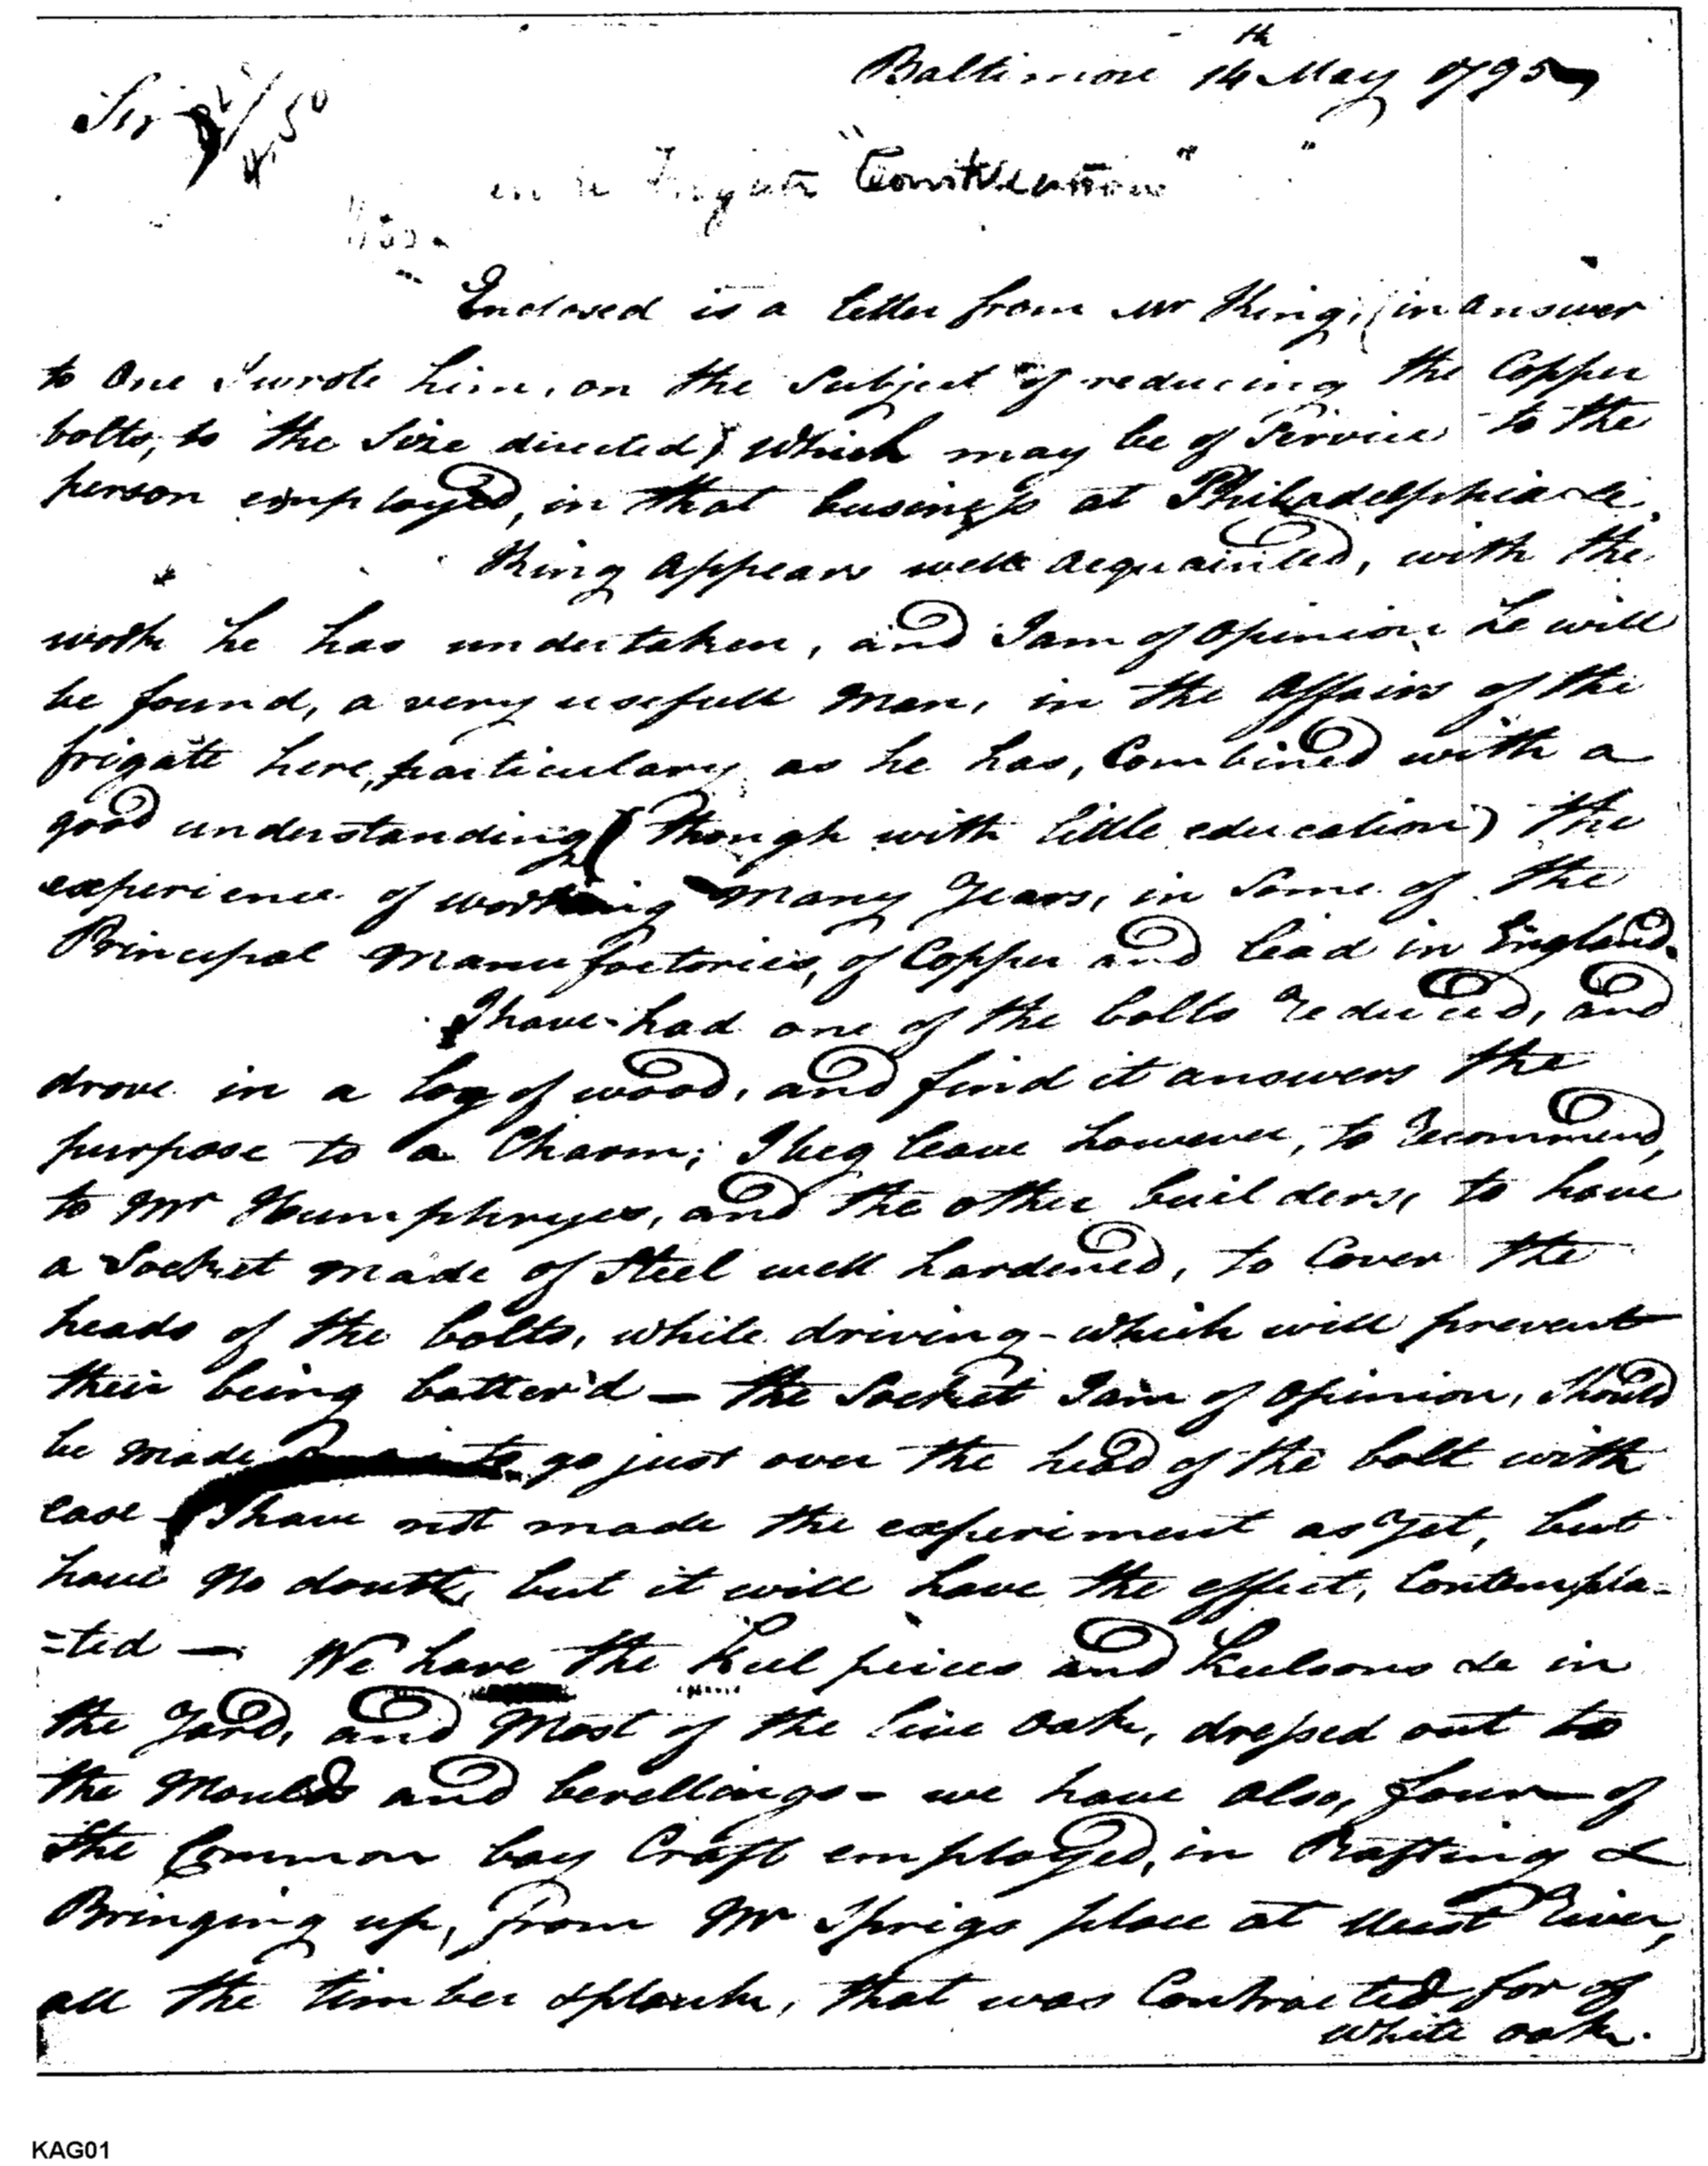 Baltimore 14th May 1795
Sir
4.50
Frigate "Constellation"
Enclosed is a letter from Mr King, (in answer
to One I wrote him, on the Subject of reducing the Copper
bolts, to the Size directed) which may be of Service to the
person employed, in that business at Philadelphia &c.
King appears well acquainted, with the
work he has undertaken, and I am of Opinion he will
be found, a very usefull Man, in the Affairs of the
frigate here, particulary as he has, Combined with a
good understanding (though with little education) the
experience of working Many Years, in Some of the
Principal Manufactories, of Copper and lead in England.
I have had one of the bolts reduced, and
drove in a log of wood, and find it answers the
purpose to a Charm; I beg leave however, to recommend,
to Mr Humphryes, and the other builders, to have
a Socket made of Steel well hardened, to Cover the
heads of the bolts, while driving - which will prevent
their being batter'd — the Socket I am of Opinion, Should
be made to go just over the head of the bolt with
ease - I have not made the experiment as Yet, but
have No doubt, but it will have the effect, Contempla-
=ted — We have the Keel peices and Keelsons &c in
the Yard, and Most of the live Oak, dressed out to
the Moulds and bevellings - we have also, four of
the Common bay Craft employed, in Rafting &
Bringing up, from Mr Sprigs place at West River,
all the timber & plank, that was Contracted for of
white oak.
KAG01